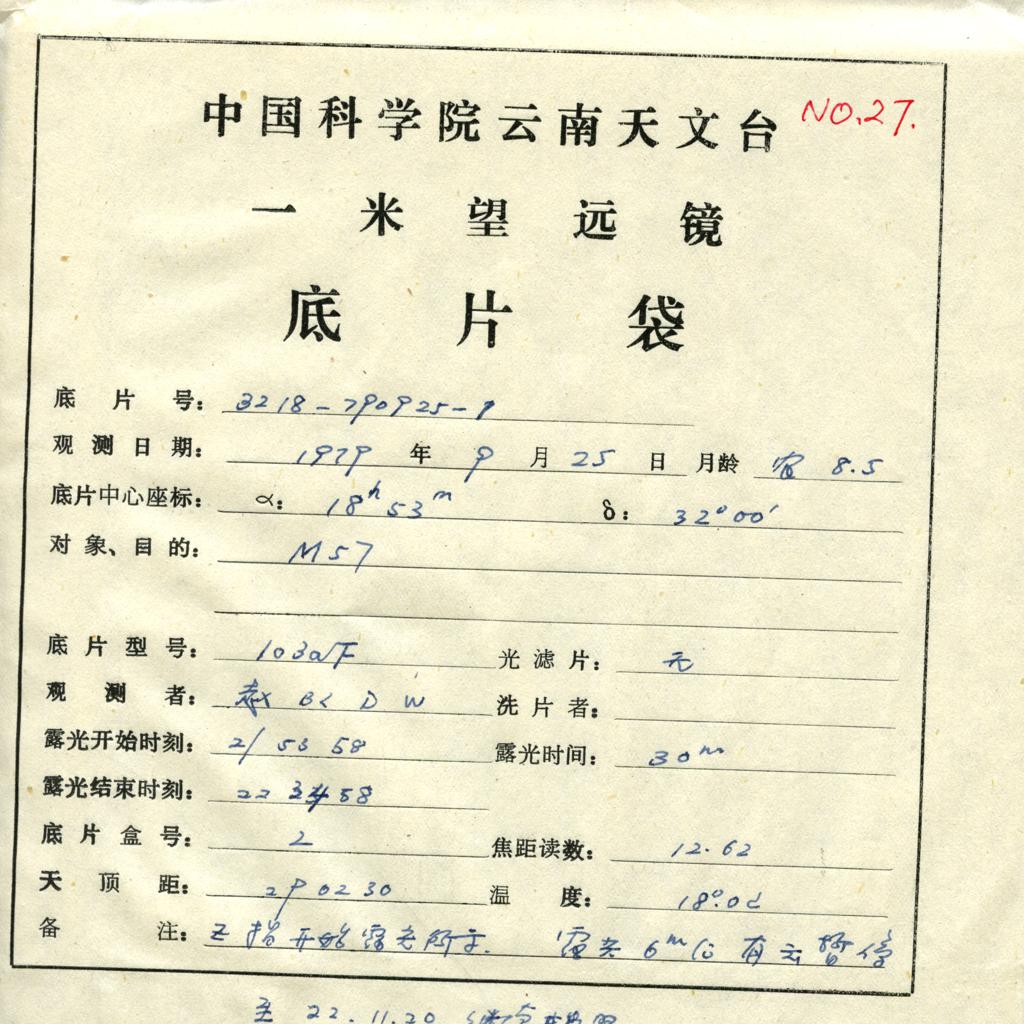 中国科学院云南天文台 NO.27.
一米望远镜
底片袋
底片号: 3218-790925-1
观测日期: 1979 年 9 月 25 日 月龄 农 8.5
底片中心座标: α: 18h 53m δ: 32°00′
对象、目的: M57
底片型号: 103aF 光滤片: 无
观测者: 赵 BL D W 洗片者:
露光开始时刻: 21 53 58 露光时间: 30m
露光结束时刻: 22 34 58
底片盒号: 2 焦距读数: 12.62
天顶距: 29 02 30 温度: 18°.0
备注: Z指开始露光所示. 露光 6m 后 有云暂停
至 22.11.20 继续